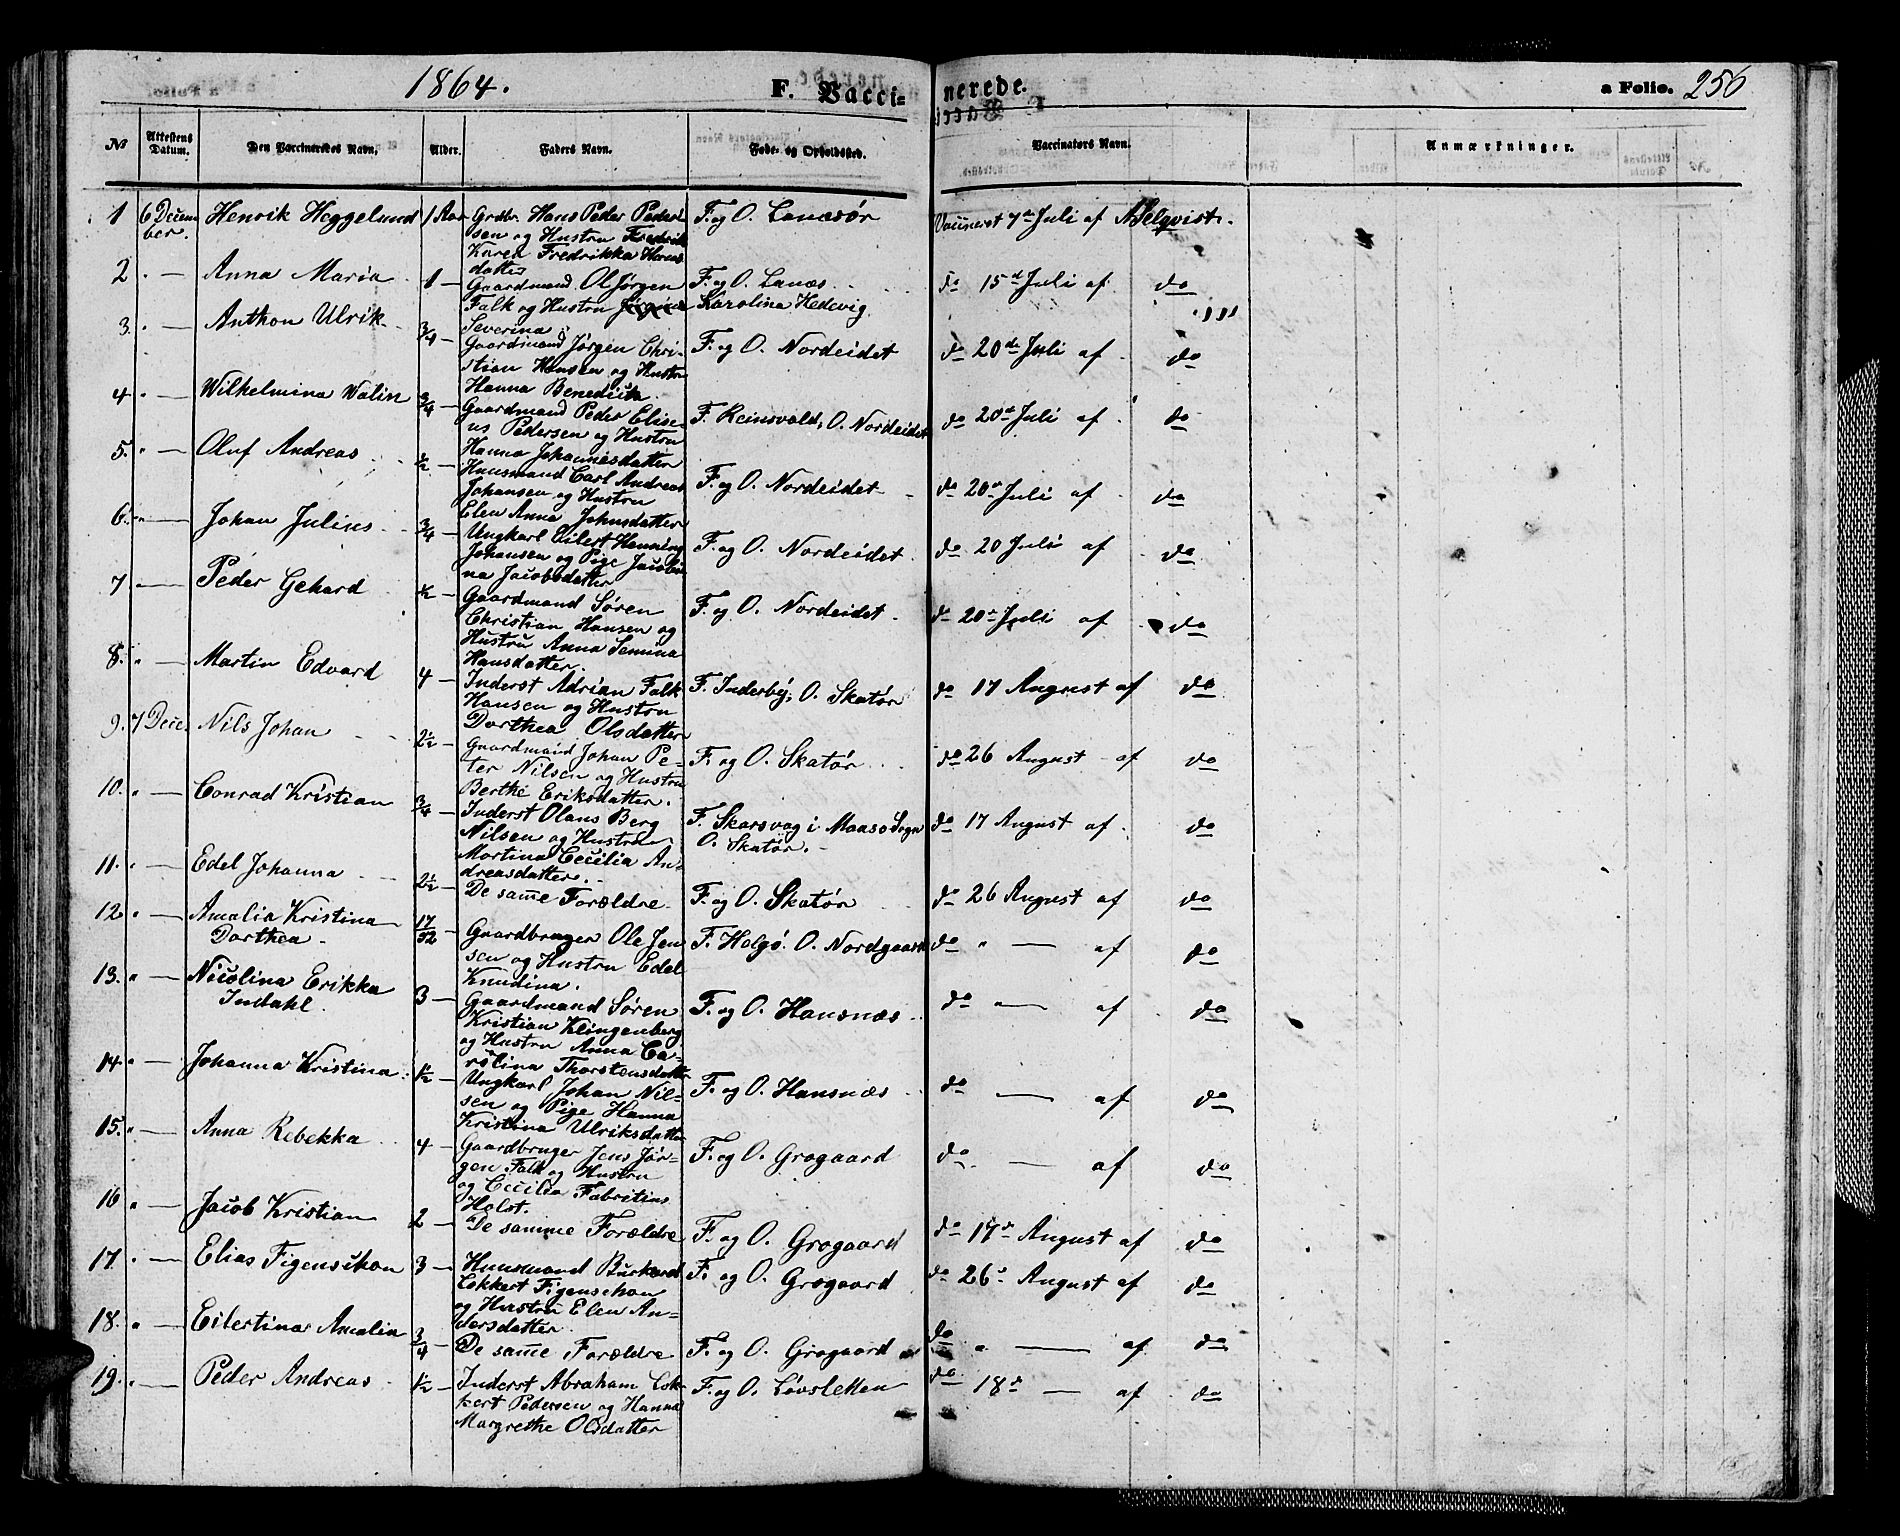 1864. F. Vacci= nerede. a Folio. 256
No Attestens Datum. Den Vaccineredes Navn. Alder. Faders Navn. Føde- og Opholdsted. Vaccinators Navn. Anmærkninger.
1 6 Decem Henrik Heggelund 1 Aar Grdbr. Hans Peder Peder F. og O. Lanæsør Vaccineret 7de Juli af
ber. sen og Hustru Fredrik
Karen Fredrikka Hans
datter
2 " — Anna Maria 1 — Gaardmand Ol Jørgen F. og O. Lanæs do 15d Juli af do
Falk og Hustru Karolina Hedevig
Severina
3. " — Anthon Ulrik 3/4 — Gaardmand Jørgen Chri- F. og O. Nordeidet do 20de Juli af do
stian Hansen og Hustru
Hanna Benedick
4 " — Wilhelmina Walin 3/4 — Gaardmand Peder Elise- F. Reinsvold, O. Nordeidet do 20de Juli af do
us Pedersen og Hustru
Hanna Johannesdatter
5. " — Oluf Andreas 1/2 — Huusmand Carl Andreas F. og O. Nordeidet do 20de Juli af do
Johansen og Hustru
Elen Anna Johnsdatter
6. " — Johan Julius 3/4 — Ungkarl Eilert Henning F. og O. Nordeidet do 20 Juli af do
Johansen og Pige Jacobi
na Jacobsdatter
7 " — Peder Gehard 1/2 — Gaardmand Søren F. og O. Nordeidet do 20de Juli af do
Christian Hansen og
Hustru Anna Semina
Hansdatter.
8. " — Martin Edvard 4 — Inderst Adrian Falk F. Inderby, O. Skatør do 17 August af do
Hansen og Hustru
Dorthea Olsdatter
9. 7 Dece. Nils Johan 2 1/2 — Gaardmand Johan Pe- F. og O. Skatør do 26 August af do
ter Nilsen og Hustru
Berthe Eriksdatter.
10. " — Conrad Kristian 3/4 — Inderst Olaus Berg F. Skarsvag i Maasø Sogn do 17 August af do
Nilsen og Hustru O. Skatør.
Martina Cecilia An-
dreasdatter.
11. " — Edel Johanna 2 1/2 — De same Forældre F. og O. Skatør do 26 August af do
12 " — Amalia Kristina 17/52 — Gaardbruger Ole Jen F. Helgø. O. Nordgaard do " — af do
Dorthea sen og Hustru Edel
Knudina.
13. " — Nicolina Erikka 3 — Gaardmand Søren F. og O. Hansnæs do " — af do
Indahl. Kristian Klingenberg
og Hustru Anna Ca-
rolina Thorstensdatter
14 " — Johanna Kristina 1/2 — Ungkarl Johan Nil- F. og O. Hansnæs do — af do
sen og Pige Hanna
Kristina Ulriksdatter
15. " — Anna Rebekka 4 — Gaardbruger Jens Jør- F. og O. Grøgaard do — af do
gen Falk og Hustru
og Cecilia Fabritius
Holst.
16 " — Jacob Kristian 2 — De samme Forældre F. og O. Grøgaard do 17de August af do
17. " — Elias Figenschou 3 — Huusmand Burkard F. og O. Grøgaard do 26de August af do
Lokkert Figenschou
og Hustru Elen An-
dersdatter
18. " — Eilertina Amalia 3/4 — De same Forældre F. og O. Grøgaard do " — af do
19. " — Peder Andreas 1/2 — Inderst Abraham Lok- F. og O. Løvsletten do 18de — af do
kert Pedersen og Hanna
Margrethe Olsdatter